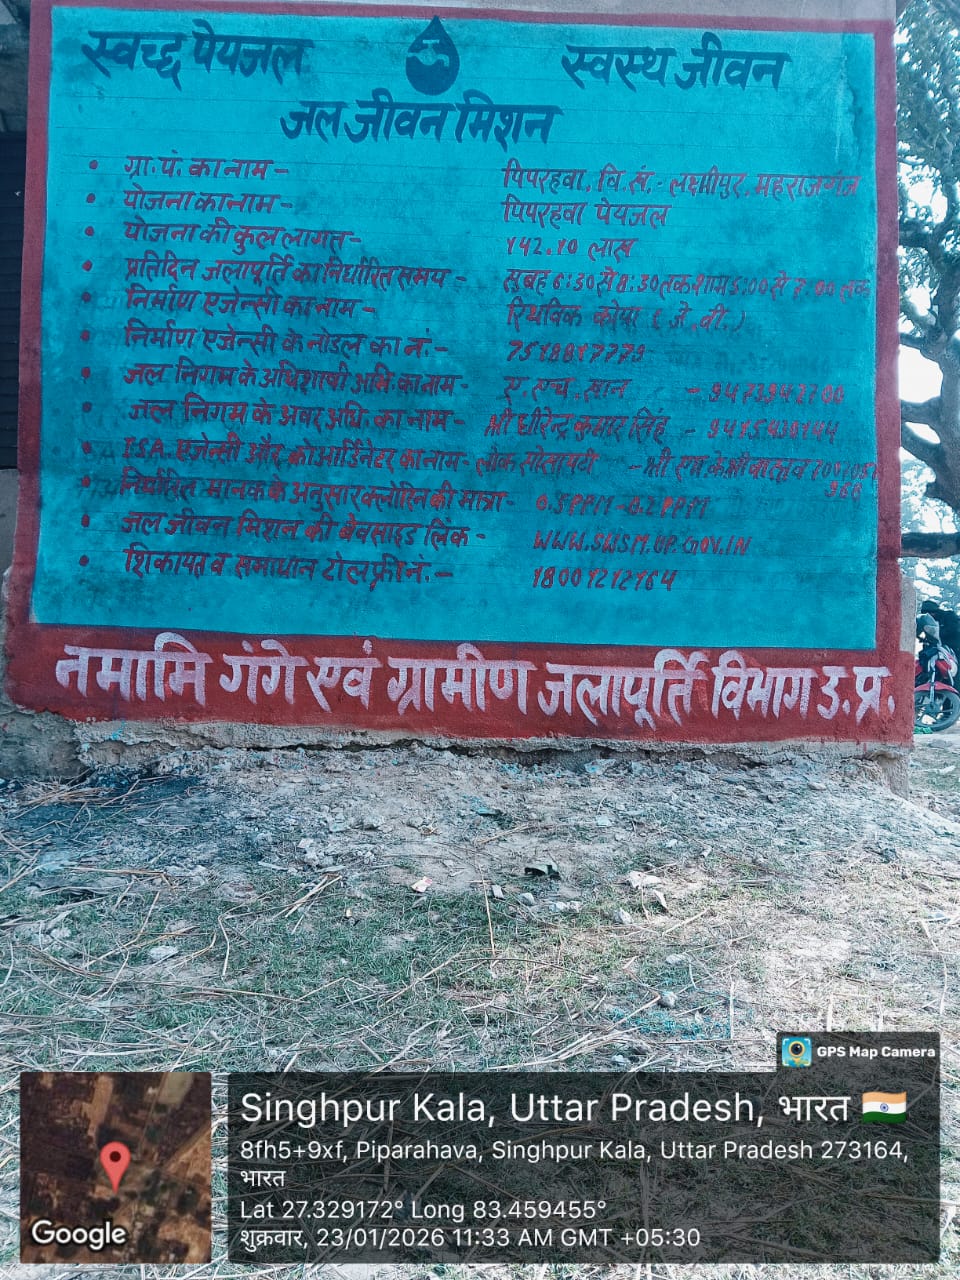 स्वच्छ पेयजल स्वस्थ जीवन
जल जीवन मिशन
• ग्रा.पं. का नाम – पिपरहवा, वि.खं.- लक्ष्मीपुर, महराजगंज
• योजना का नाम – पिपरहवा पेयजल
• योजना की कुल लागत – 142.10 लाख
• प्रतिदिन जलापूर्ति का निर्धारित समय – सुबह 6:30 से 8:30 तक शाम 5:00 से 7:00 तक
• निर्माण एजेन्सी का नाम – रिथविक कोया ( जे.वी.)
• निर्माण एजेन्सी के नोडल का नं.-
• जल निगम के अधिशाषी अभि. का नाम- ए. एच. खान –
• जल निगम के अवर अभि. का नाम- श्री धीरेन्द्र कुमार सिंह –
• I.S.A. एजेन्सी और कोआर्डिनेटर का नाम- लोक सोसायटी – श्री एस.के. श्रीवास्तव
• निर्धारित मानक के अनुसार क्लोरिन की मात्रा- 0.5PPM-0.2PPM
• जल जीवन मिशन की बेवसाइड लिंक - WWW.SWSM.UP.GOV.IN
• शिकायत व समाधान टोल फ्री नं.– 18001212164
नमामि गंगे एवं ग्रामीण जलापूर्ति विभाग उ.प्र.
GPS Map Camera
Singhpur Kala, Uttar Pradesh, भारत
8fh5+9xf, Piparahava, Singhpur Kala, Uttar Pradesh 273164,
भारत
Lat 27.329172° Long 83.459455°
शुक्रवार, 23/01/2026 11:33 AM GMT +05:30
Google